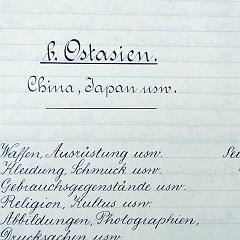 b. Ostasien.
China, Japan usw.
Waffen, Ausrüstung usw.
Kleidung, Schmuck usw.
Gebrauchsgegenstände usw.
Religion, Kultus usw.
Abbildungen, Photographien,
Drucksachen usw.